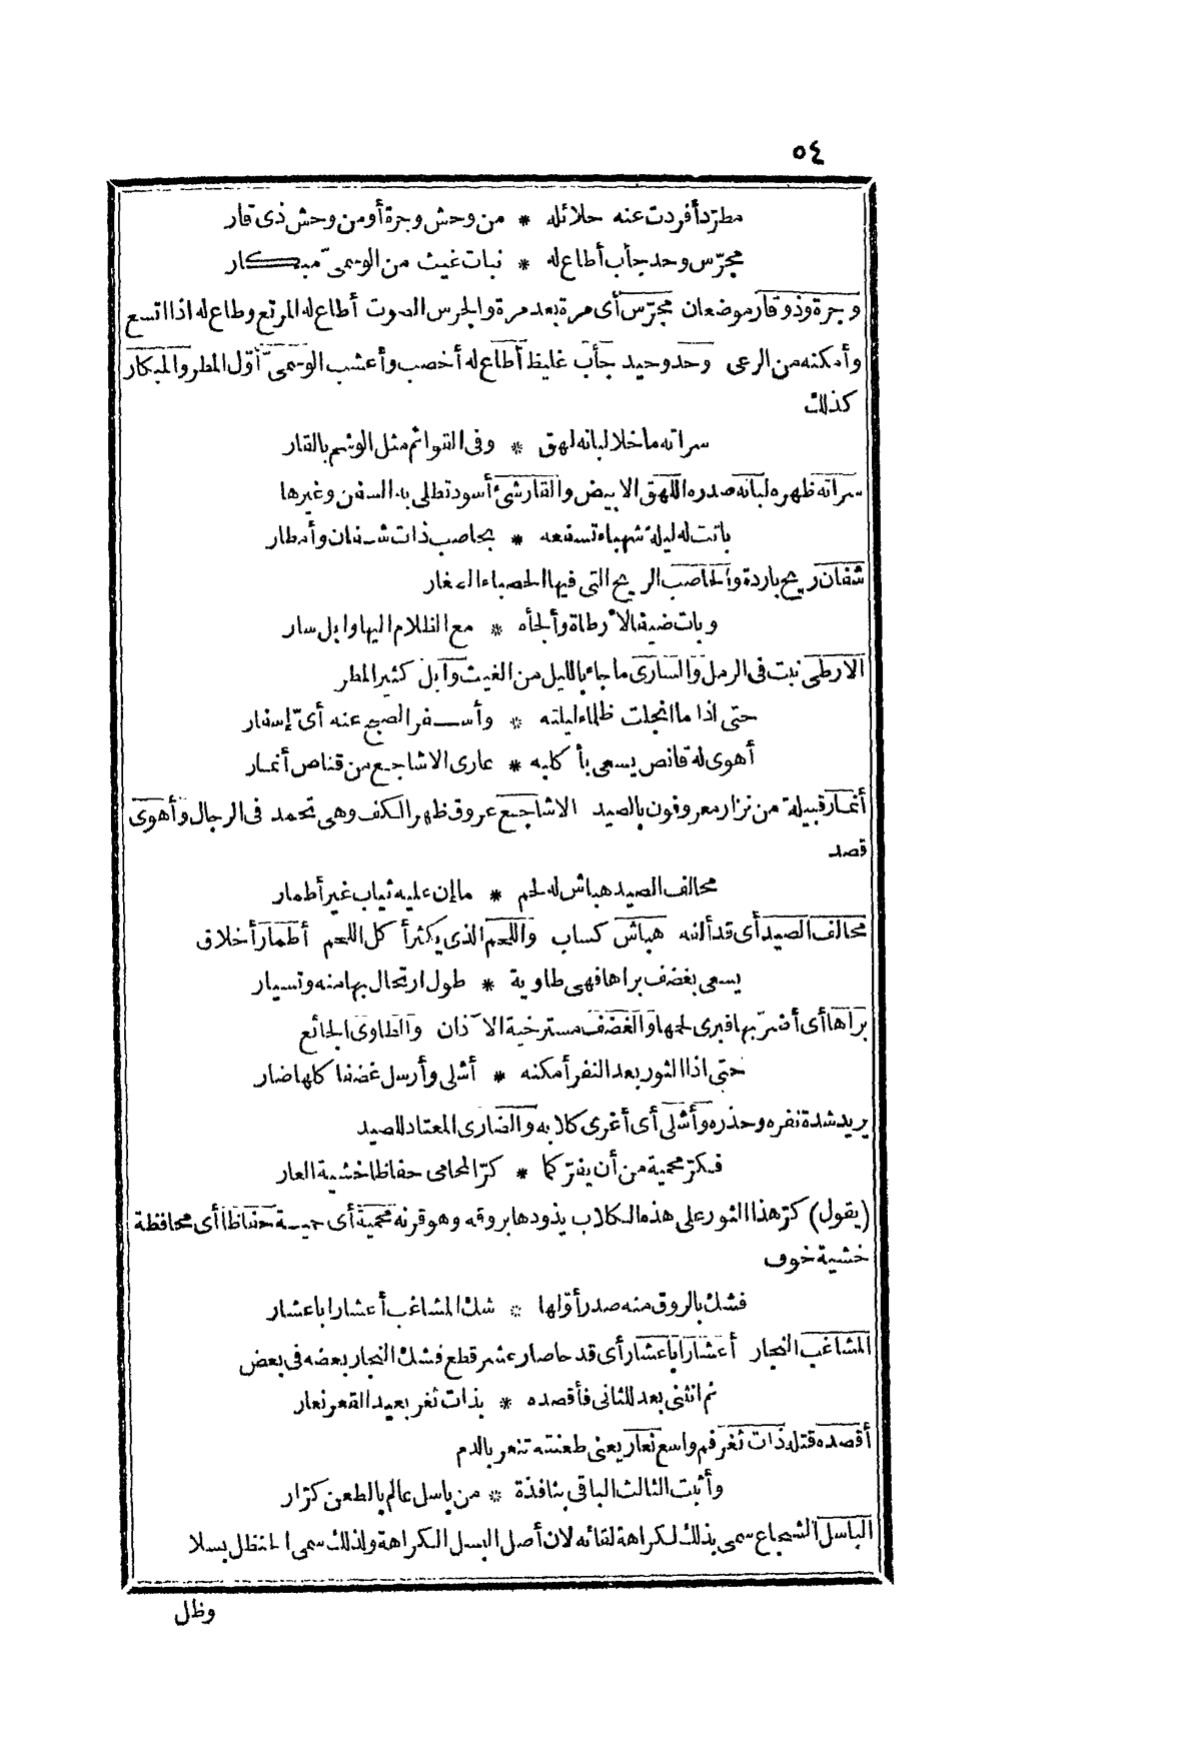 ٥٤
مطرّد أفردت عنه حلائله * من وحش وجرة أو من وحش ذى قار
مجرّس وحد جأب أطاع له * نبات غيث من الوسمىّ مبكار
وجرة وذو قار موضعان مجرّس أى مرة بعد مرة والجرس الصوت أطاع له المرتع وطاع له اذا اتسع
وأمكنه من الرعى وحد وحيد جأب غليظ أطاع له أخصب وأعشب الوسمىّ أوّل المطر والمبكار
كذلك
سراته ما خلا لبانه لهق * وفى القوائم مثل الوشم بالقار
سراته ظهره لبانه صدره اللهق الابيض والقار شئ أسود تطلى به السفن وغيرها
باتت له ليلة شهباء تسفعه * بحاصب ذات شفان وأمطار
شفان ريح باردة والحاصب الريح التى فيها الحصباء الصغار
وبات ضيفا لأرطاة وألجأه * مع الظلام اليها وابل سار
الارطى نبت فى الرمل والسارى ما جاء بالليل من الغيث وابل كثير المطر
حتى اذا ما انجلت ظلماء ليلته * وأسفر الصبح عنه أىّ إسفار
أهوى له قانص يسعى بأكلبه * عارى الاشاجع من قناص أنمار
أنمار قبيلة من نزار معروفون بالصيد الاشاجع عروق ظهر الكف وهى تحمد فى الرجال وأهوى
قصد
محالف الصيد هباش له لحم * ما إن عليه ثياب غير أطمار
محالف الصيد أى قد ألفه هباش كساب واللحم الذى يكثر أكل اللحم أطمار أخلاق
يسعى بغضف براها فهى طاوية * طول ارتحال بها منه وتسيار
براها أى أضرّ بها فبرى لحمها والغضف مسترخية الآذان والطاوى الجائع
حتى اذا الثور بعد النفر أمكنه * أشلى وأرسل غضفا كلها ضار
يريد شدة نفره وحذره وأشلى أى أغرى كلابه والضارى المعتاد للصيد
فكرّ محمية من أن يفرّ كما * كرّ المحامى حفاظا خشية العار
(يقول) كرّ هذا الثور على هذه الكلاب يذودها بروقه وهو قرنه محمية أى حمية حفاظا أى محافظة
خشية خوف
فشك بالروق منه صدر أوّلها * شك المشاغب أعشارا باعشار
المشاغب النجار أعشارا باعشار أى قدحا صار عشر قطع فشك النجار بعضه فى بعض
ثم انثنى بعد للثانى فأقصده * بذات ثغر بعيد القعر نعار
أقصده قتله ذات ثغر فم واسع نعار يعنى طعنته تنعر بالدم
وأثبت الثالث الباقى بنافذة * من باسل عالم بالطعن كرّار
الباسل الشجاع سمى بذلك لكراهة لقائه لان أصل البسل الكراهة ولذلك سمى الحنظل بسلا
وظل